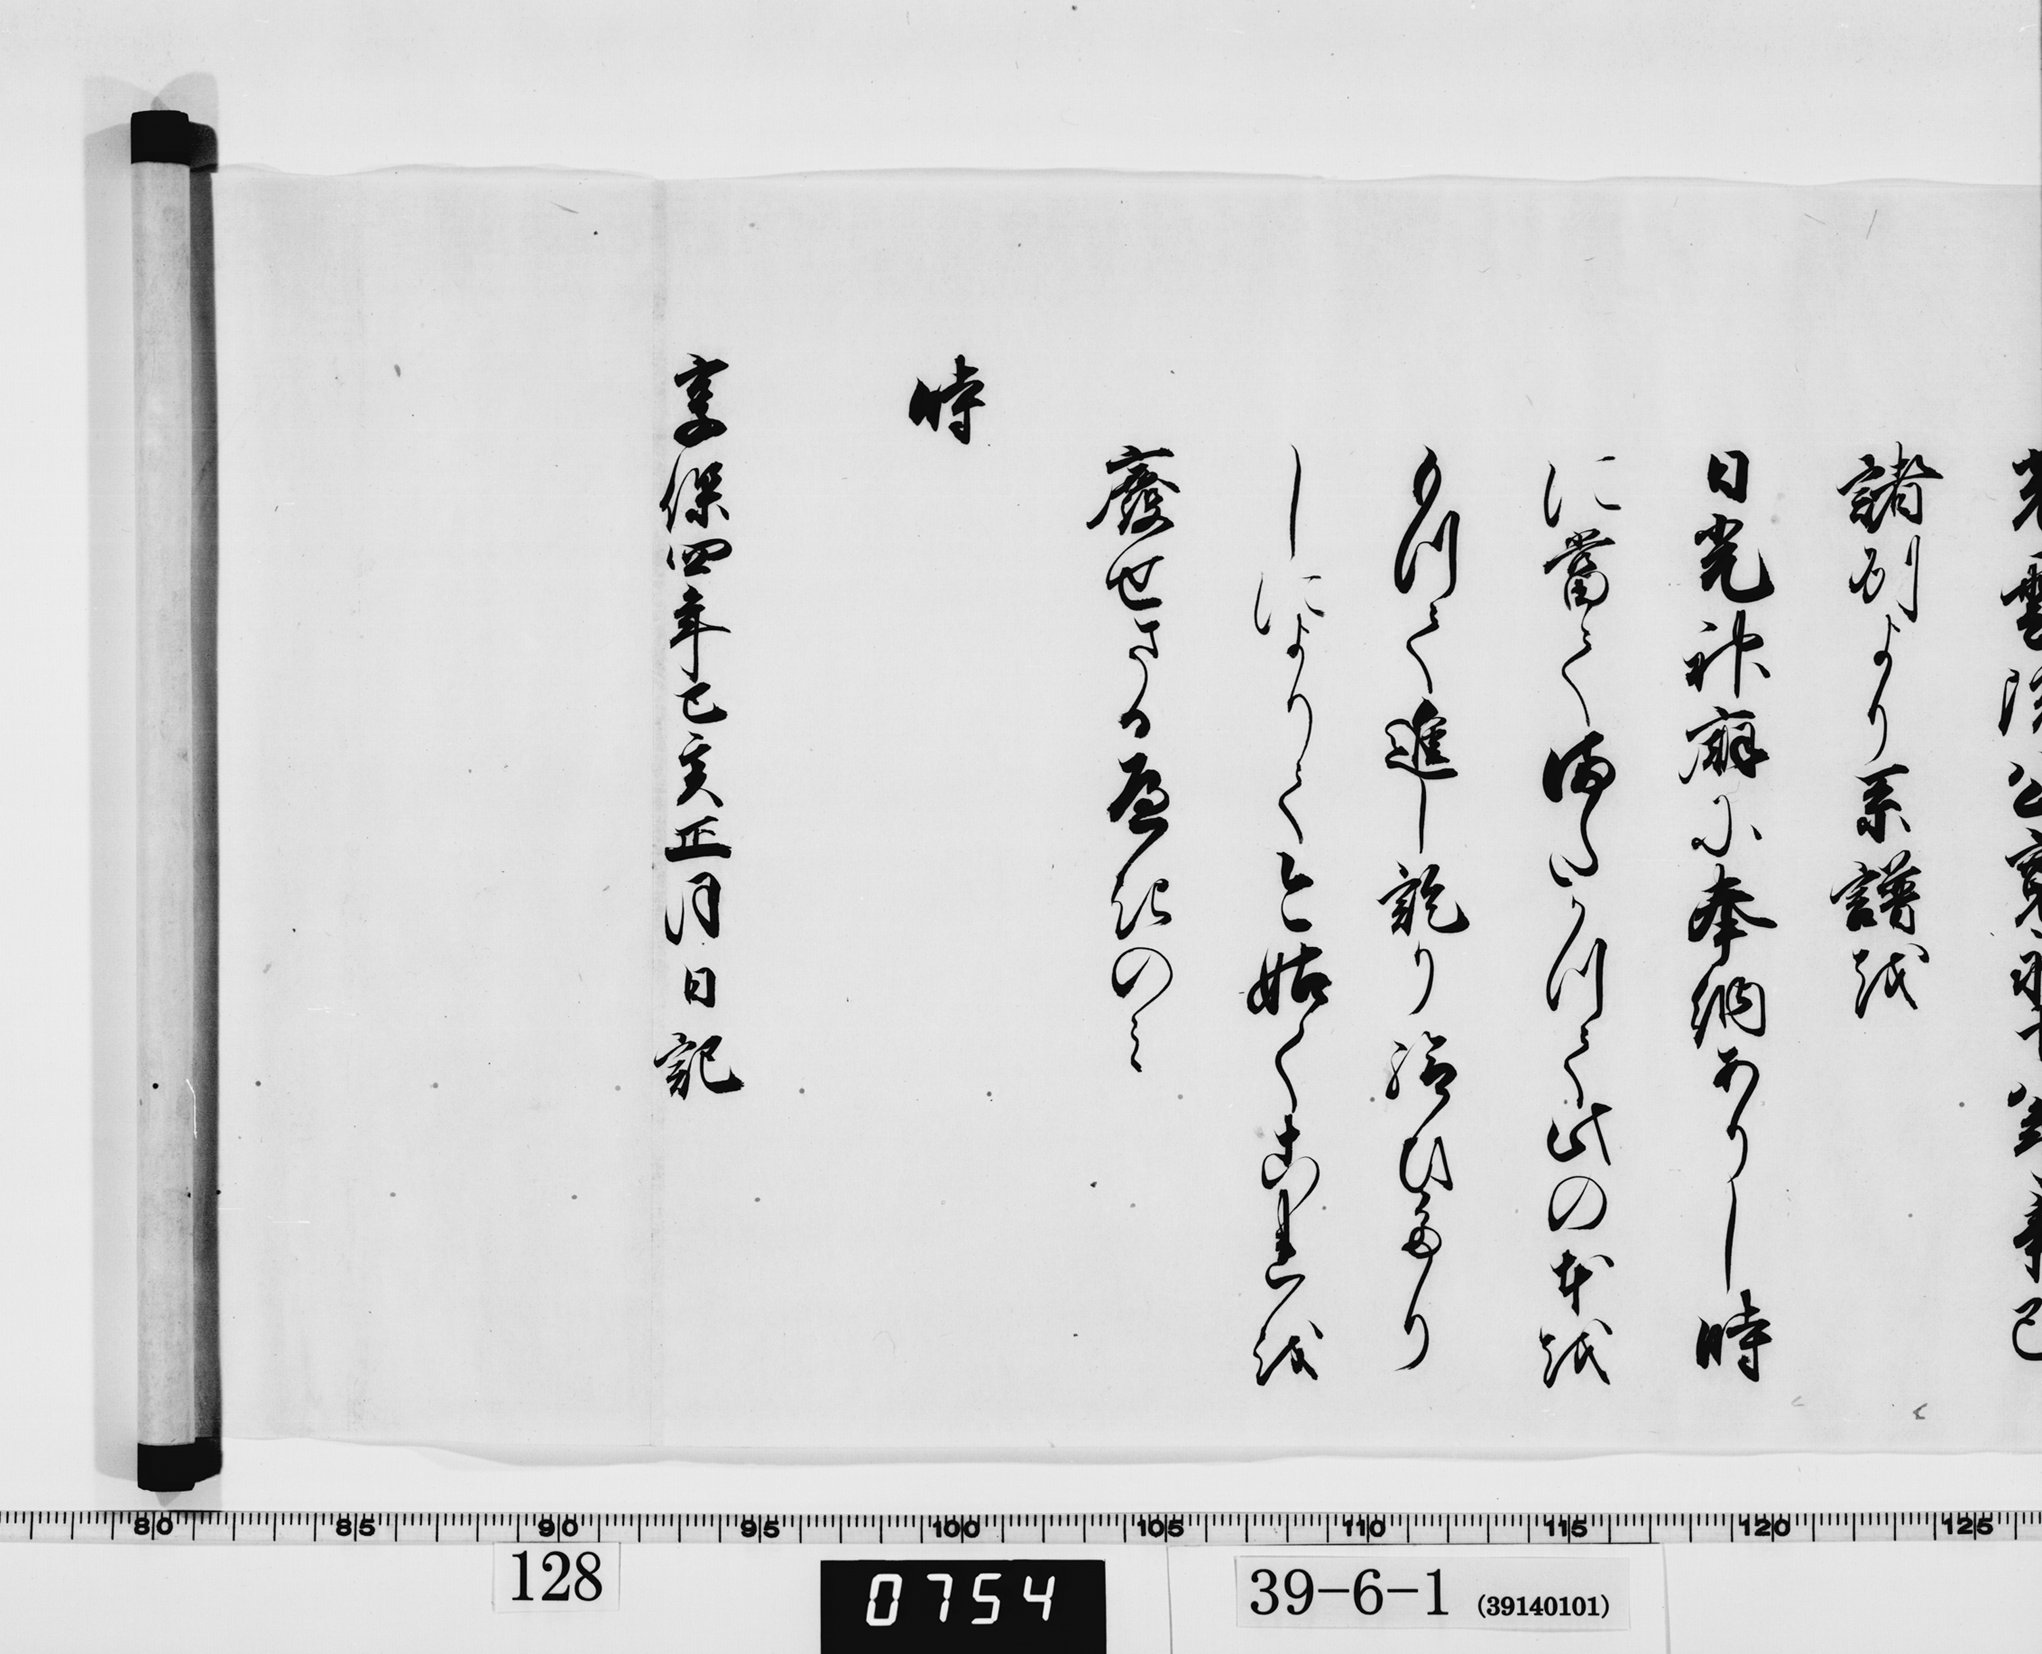 諸州より系譜を
日光神廟に奉納ありし時
に當てまちかつて此の本を
もつて進し訖り給ひたり
しによりて今姑くこれを
廢せさるへきのみ
時
享保四年己亥正月日記
80 85 90 95 100 105 110 115 120 125
128
0754
39-6-1 (39140101)